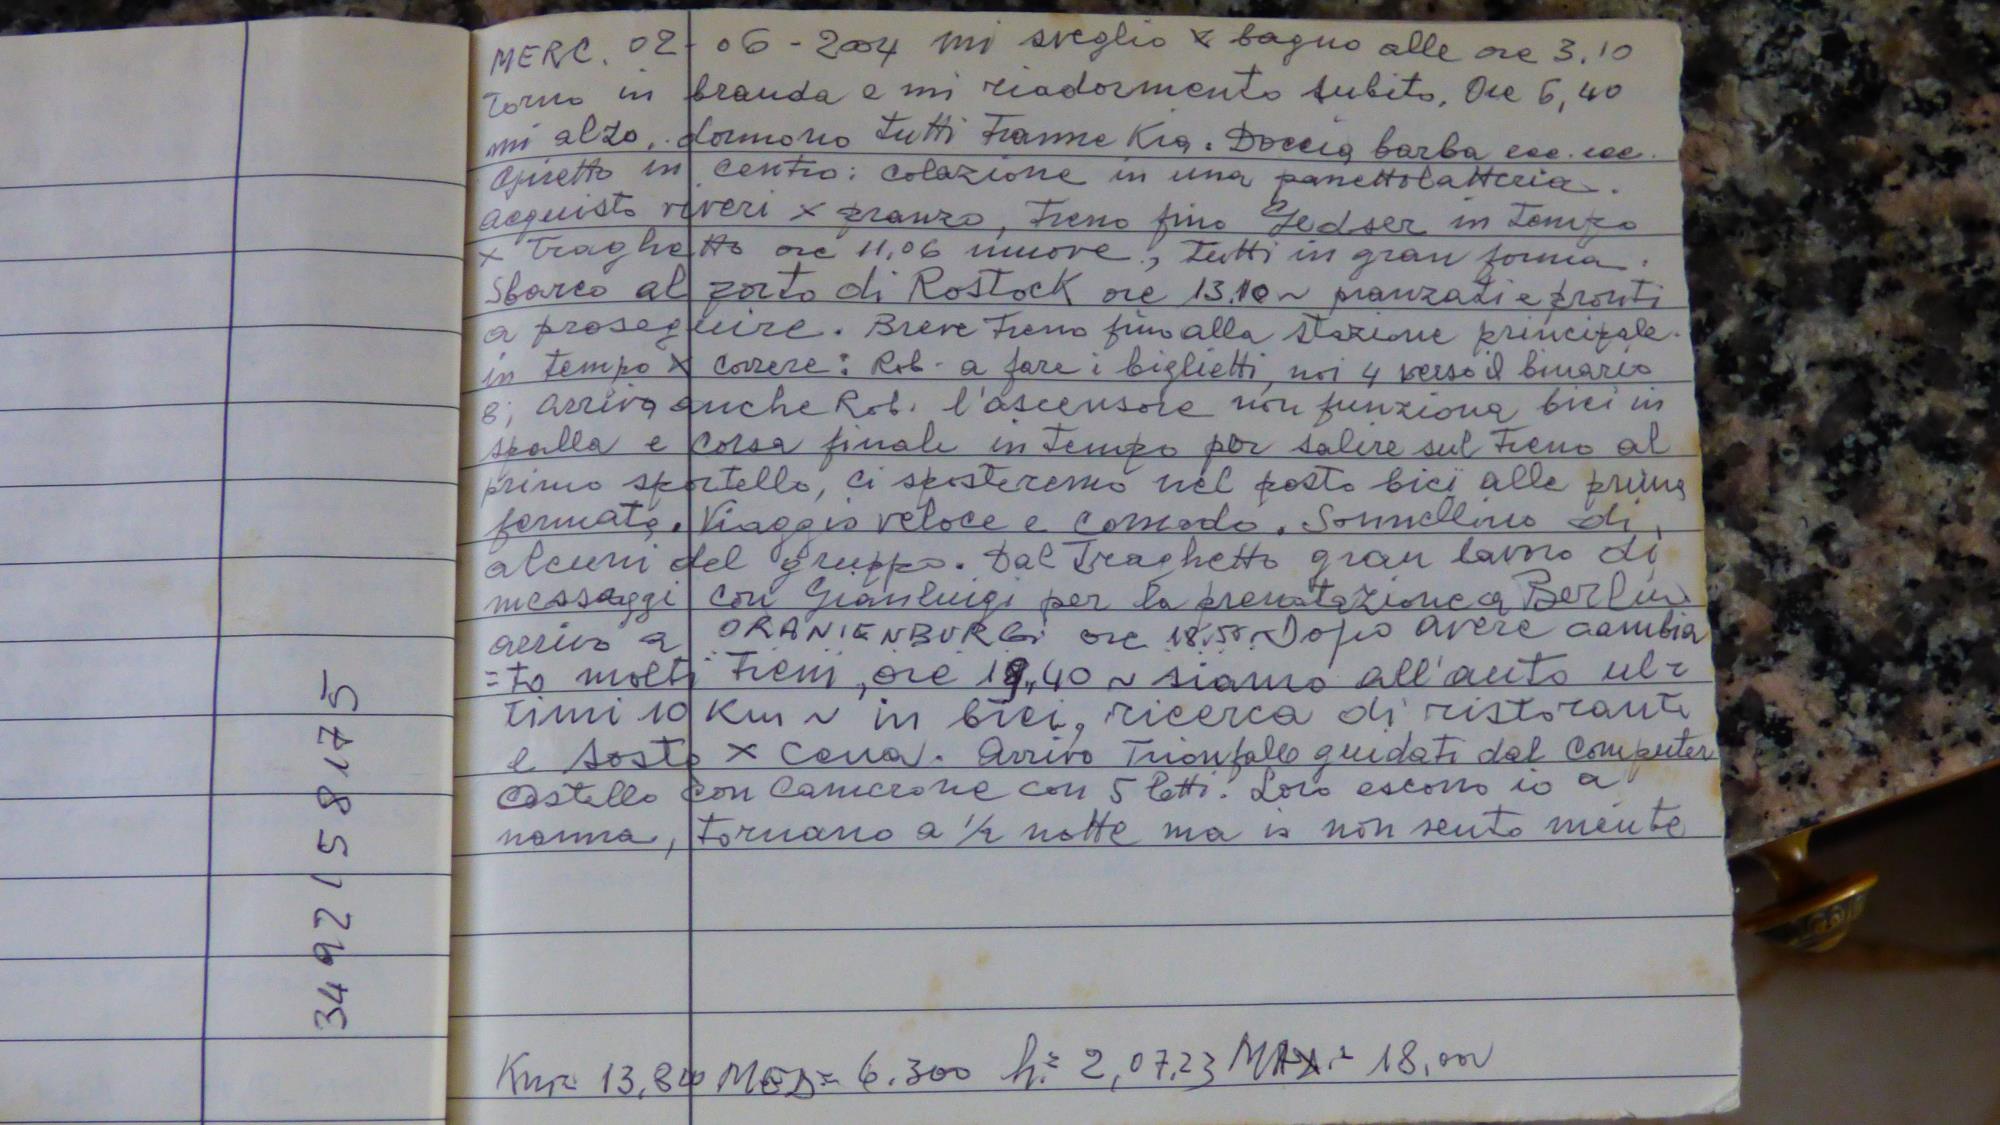 MERC. 02-06-2004 mi sveglio x bagno alle ore 3.10
Torno in branda e mi riadormento subito. Ore 6,40
mi alzo. dormono tutti Tranne Kia. Doccia barba ecc. ecc.
Giretto in centro: colazione in una panettolatteria.
acquisto viveri x pranzo, Treno fino Gedser in Tempo
x Traghetto ore 11,06 muove, Tutti in gran forma.
Sbarco al porto di Rostock ore 13.10 ~ pranzati e pronti
a proseguire. Breve Treno fino alla stazione principale.
in tempo x correre: Rob. a fare i biglietti, noi 4 verso il binario
8; arriva anche Rob. l'ascensore non funziona bici in
spalla e corsa finale in Tempo per salire sul Treno al
primo sportello, ci sposteremo nel posto bici alle prima
fermata. Viaggio veloce e comodo. Sonnellino di
alcuni del gruppo. Dal Traghetto gran lavoro di
messaggi con Gianluigi per la prenotazione a Berlin
arrivo a ORANIENBURG ore 18.50 ~ Dopo avere cambia
=to molti Treni, ore 19,40 ~ siamo all'auto ul-
timi 10 Km ~ in bici, ricerca di ristorante
e sosta x Cena. Arrivo Trionfale guidati dal Computer
Ostello con Camerone con 5 letti. Loro escono io a
nanna, Tornano a 1/2 notte ma io non sento niente
Km= 13,840 MED= 6.300 h.= 2,07,23 MAX.= 18,000
3492158175